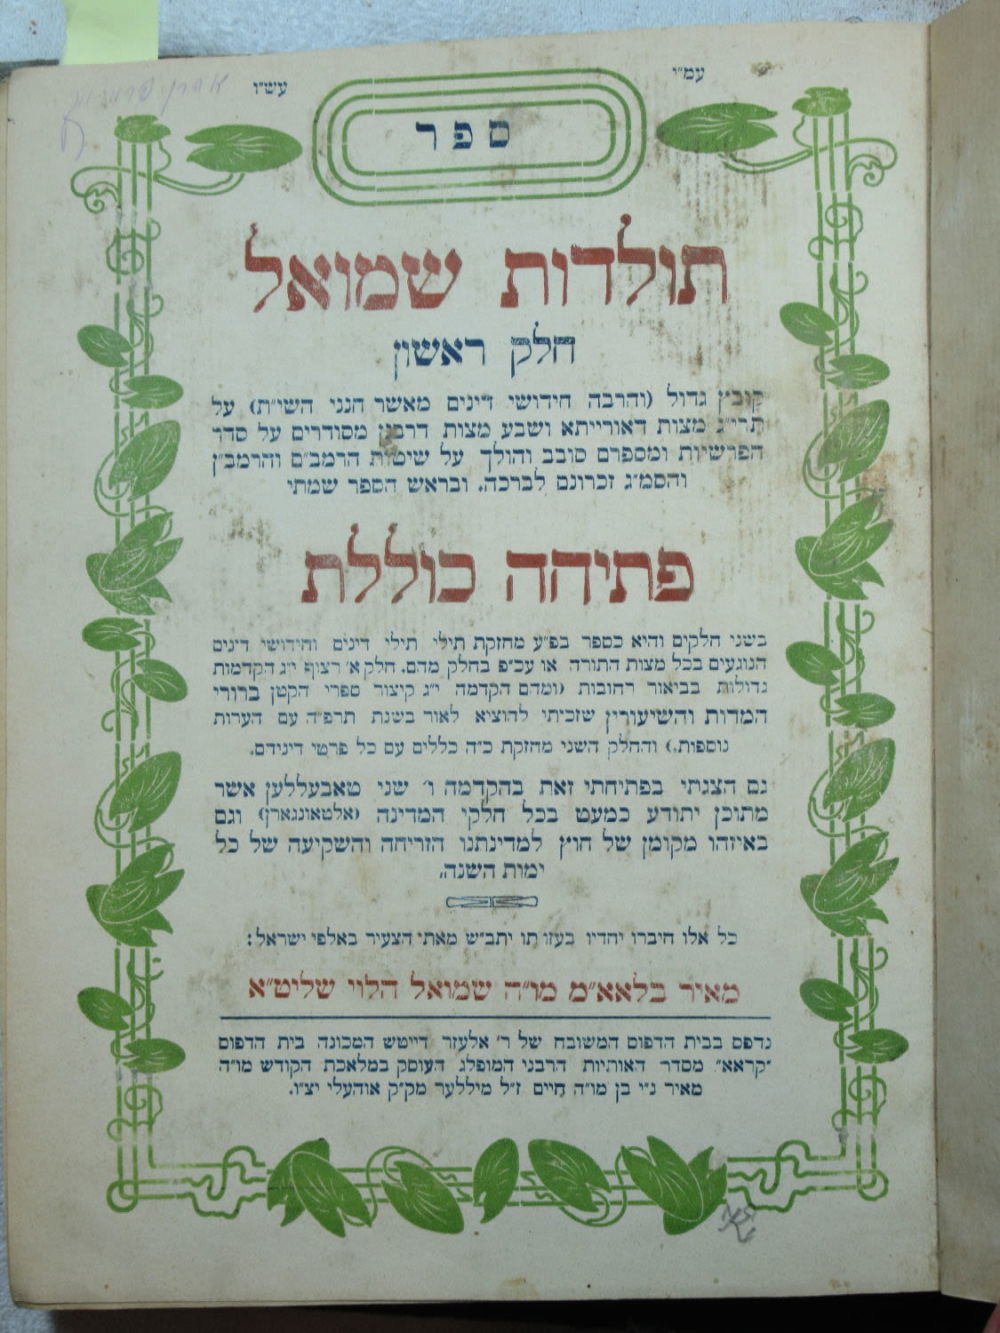 עמ״י
עש״ו
ספר
תולדות שמואל
חלק ראשון
קובץ גדול (והרבה חידושי דינים מאשר חנני השי״ת) על
תרי״ג מצות דאורייתא ושבע מצות דרבנן מסודרים על סדר
הפרשיות ומספרם סובב והולך על שיטות הרמב״ם והרמב״ן
והסמ״ג זכרונם לברכה. ובראש הספר שמתי
פתיחה כוללת
בשני חלקים והיא כספר בפ״ע מחזקת תילי תילי דינים וחידושי דינים
הנוגעים בכל מצות התורה או עכ״פ בחלק מהם. חלק א׳ רצוף י״ג הקדמות
גדולות בביאור רחובות (ומהם הקדמה י״ג קיצור ספרי הקטן ברורי
המדות והשיעורין שזכיתי להוציא לאור בשנת תרפ״ה עם הערות
נוספות.) והחלק השני מחזקת כ״ה כללים עם כל פרטי דיניהם.
גם הצגתי בפתיחתי זאת בהקדמה ו׳ שני טאבעללען אשר
מתוכן יתודע כמעט בכל חלקי המדינה (אלטאונגארן) וגם
באיזהו מקומן של חוץ למדינתנו הזריחה והשקיעה של כל
ימות השנה.
כל אלו חיברו יחדיו בעזרתו יתב״ש מאתי הצעיר באלפי ישראל:
מאיר בלאא״מ מו״ה שמואל הלוי שליט״א
נדפס בבית הדפוס המשובח של ר׳ אלעזר דייטש המכונה בית הדפוס
״קראא״ מסדר האותיות הרבני המופלג העוסק במלאכת הקודש מו״ה
מאיר נ״י בן מו״ה חיים ז״ל מיללער מק״ק אוהעלי יצ״ו.